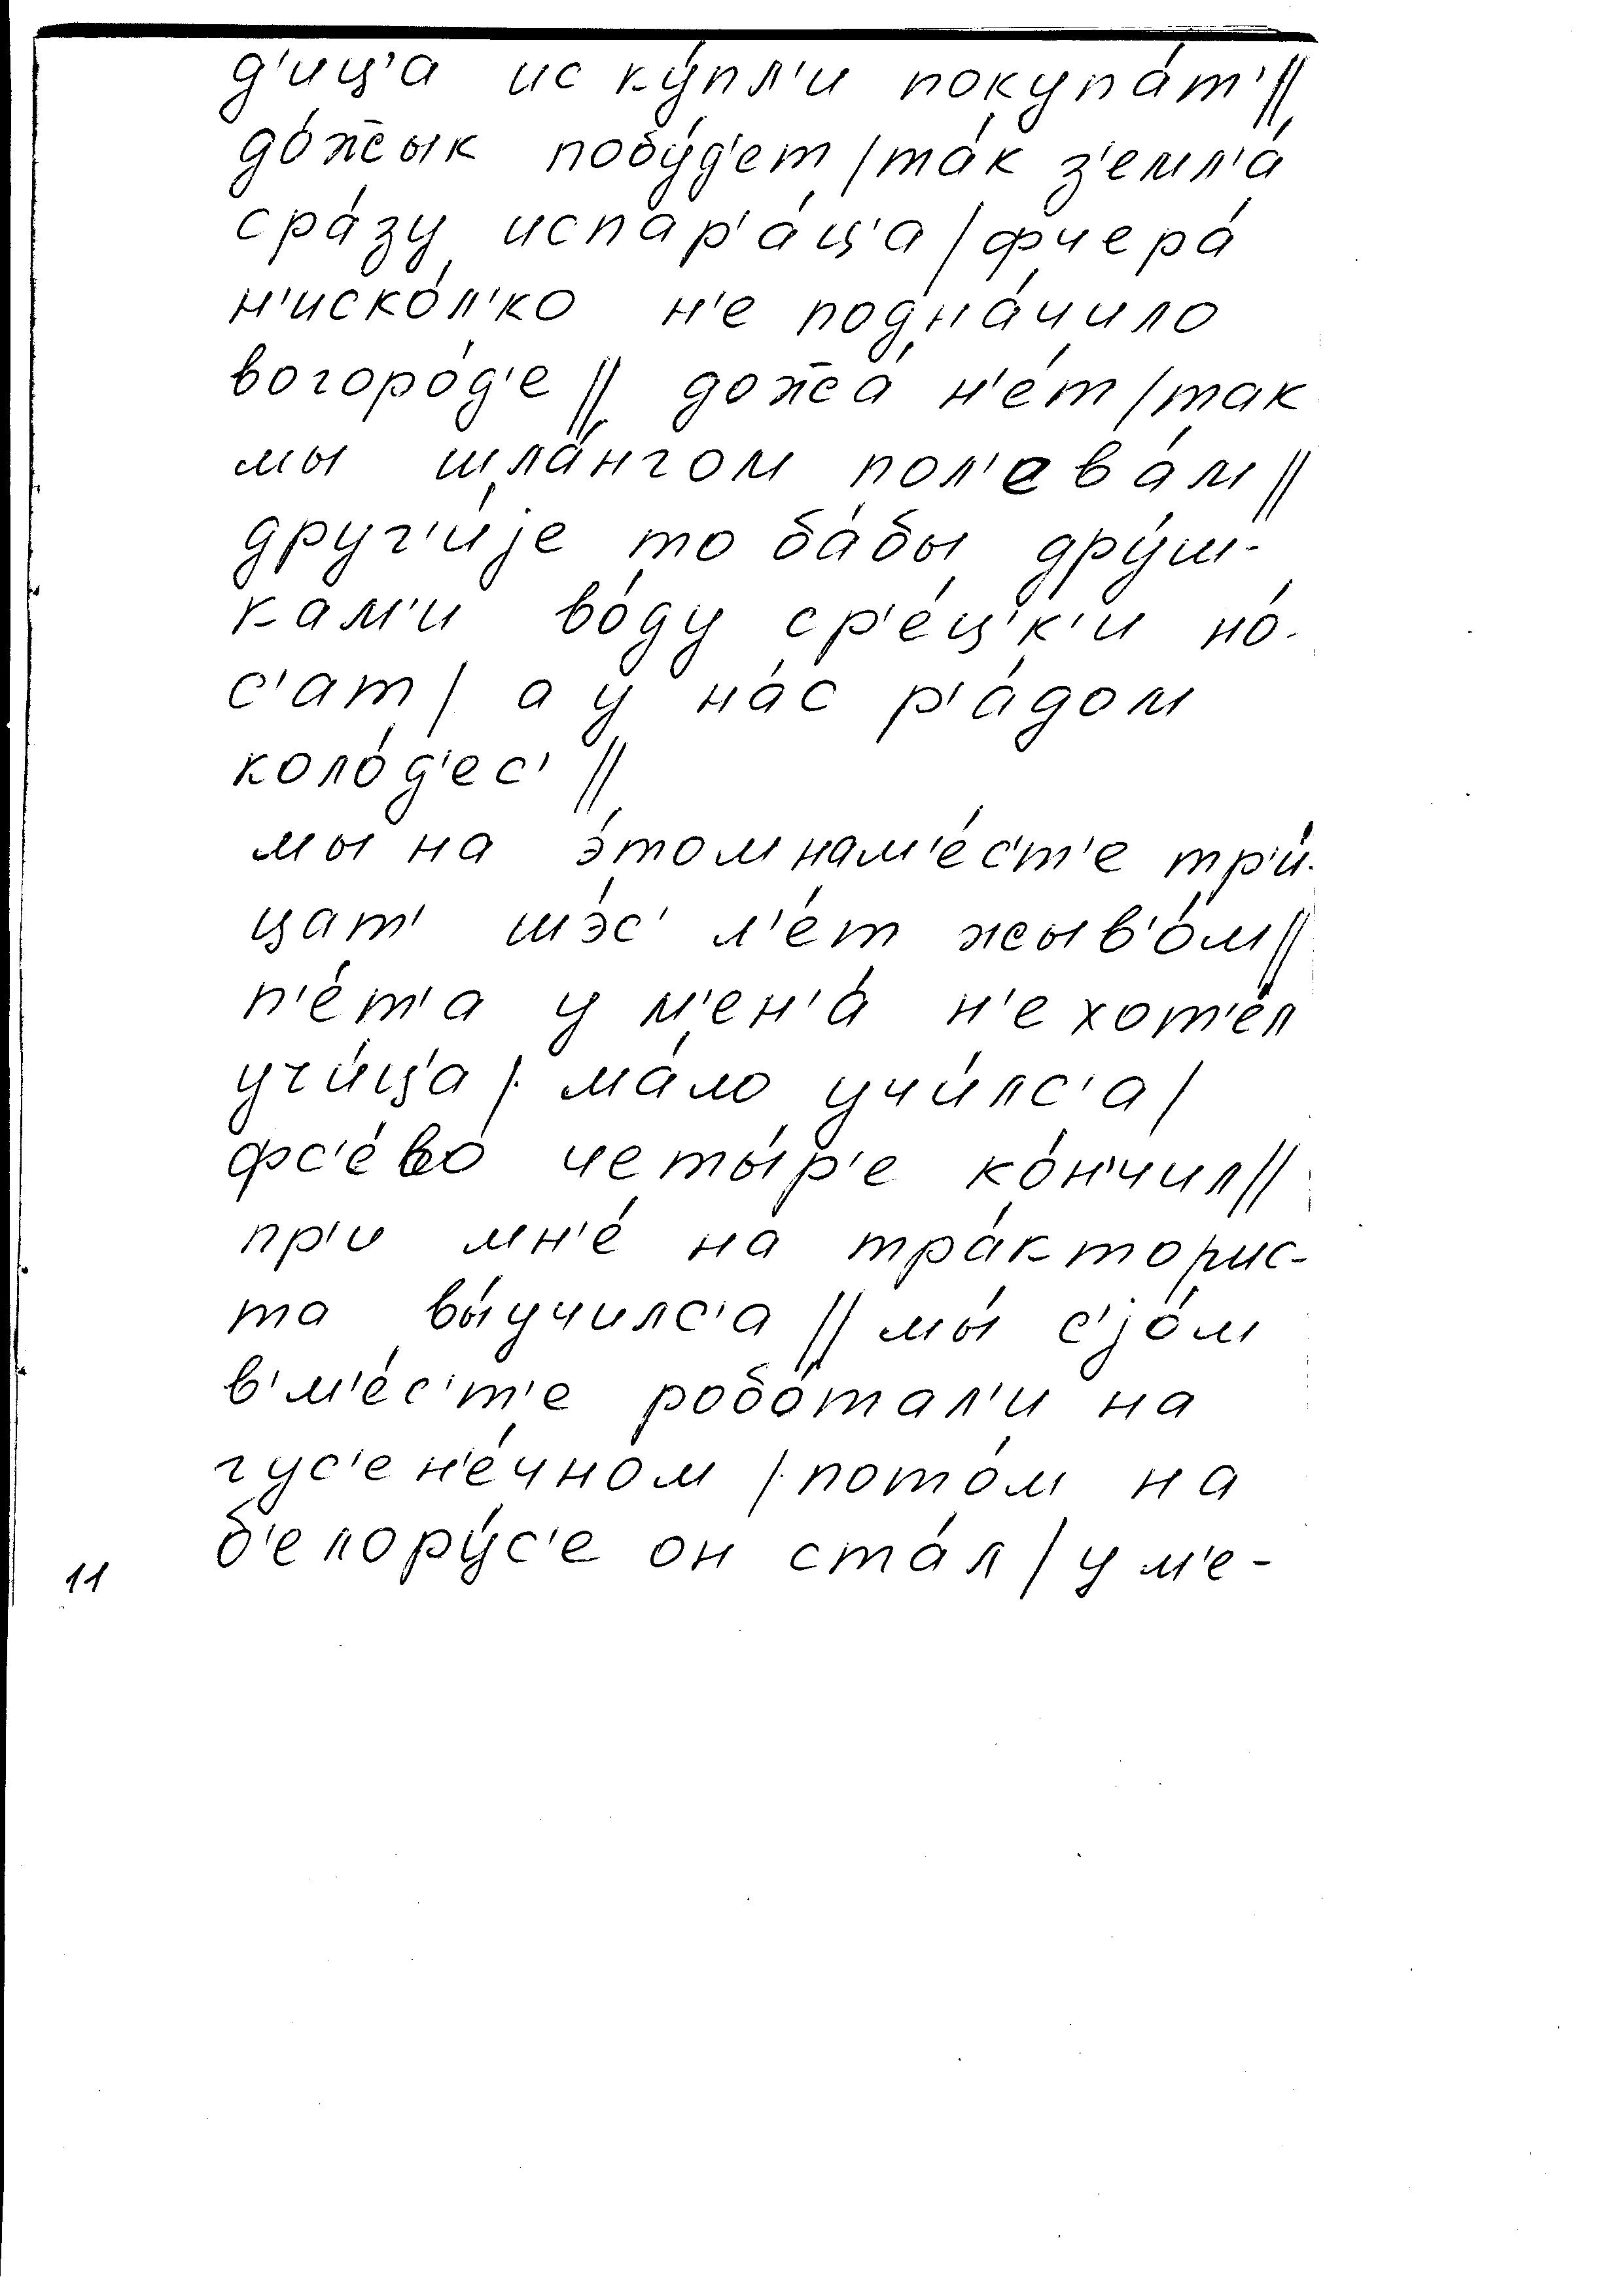 д'иц'а ис ку́пл'и покупа́т'//
до́ж̅ык побу́д'ет / та́к з'емл'а́
сра́зу испар'а́ц'а / фчера́
н'иско́л'ко н'е подна́чило
вогоро́д'е // дож̅а́ н'е́т / так
мы шла́нгом пол'ева́м //
друг'и́jе то ба́бы дру́ш-
кам'и во́ду ср'е́ц'к'и но́-
с'ат / а у на́с р'а́дом
коло́д'ес' //
мы на э́том нам'е́с'т'е тр'и́-
цат' шэ́с' л'е́т жыв'о́м //
п'е́т'а у м'ен'а́ н'е хот'е́л
учи́ц'а / ма́ло учи́лс'а /
фс'ево́ четы́р'е ко́н'чил //
пр'и мн'е́ на тра́кторис-
та вы́училс'а // мы́ с'jо́м
в'м'е́с'т'е робо́тал'и на
гус'ен'е́чном / пото́м на
б'елору́с'е он ста́л / у м'е-
11